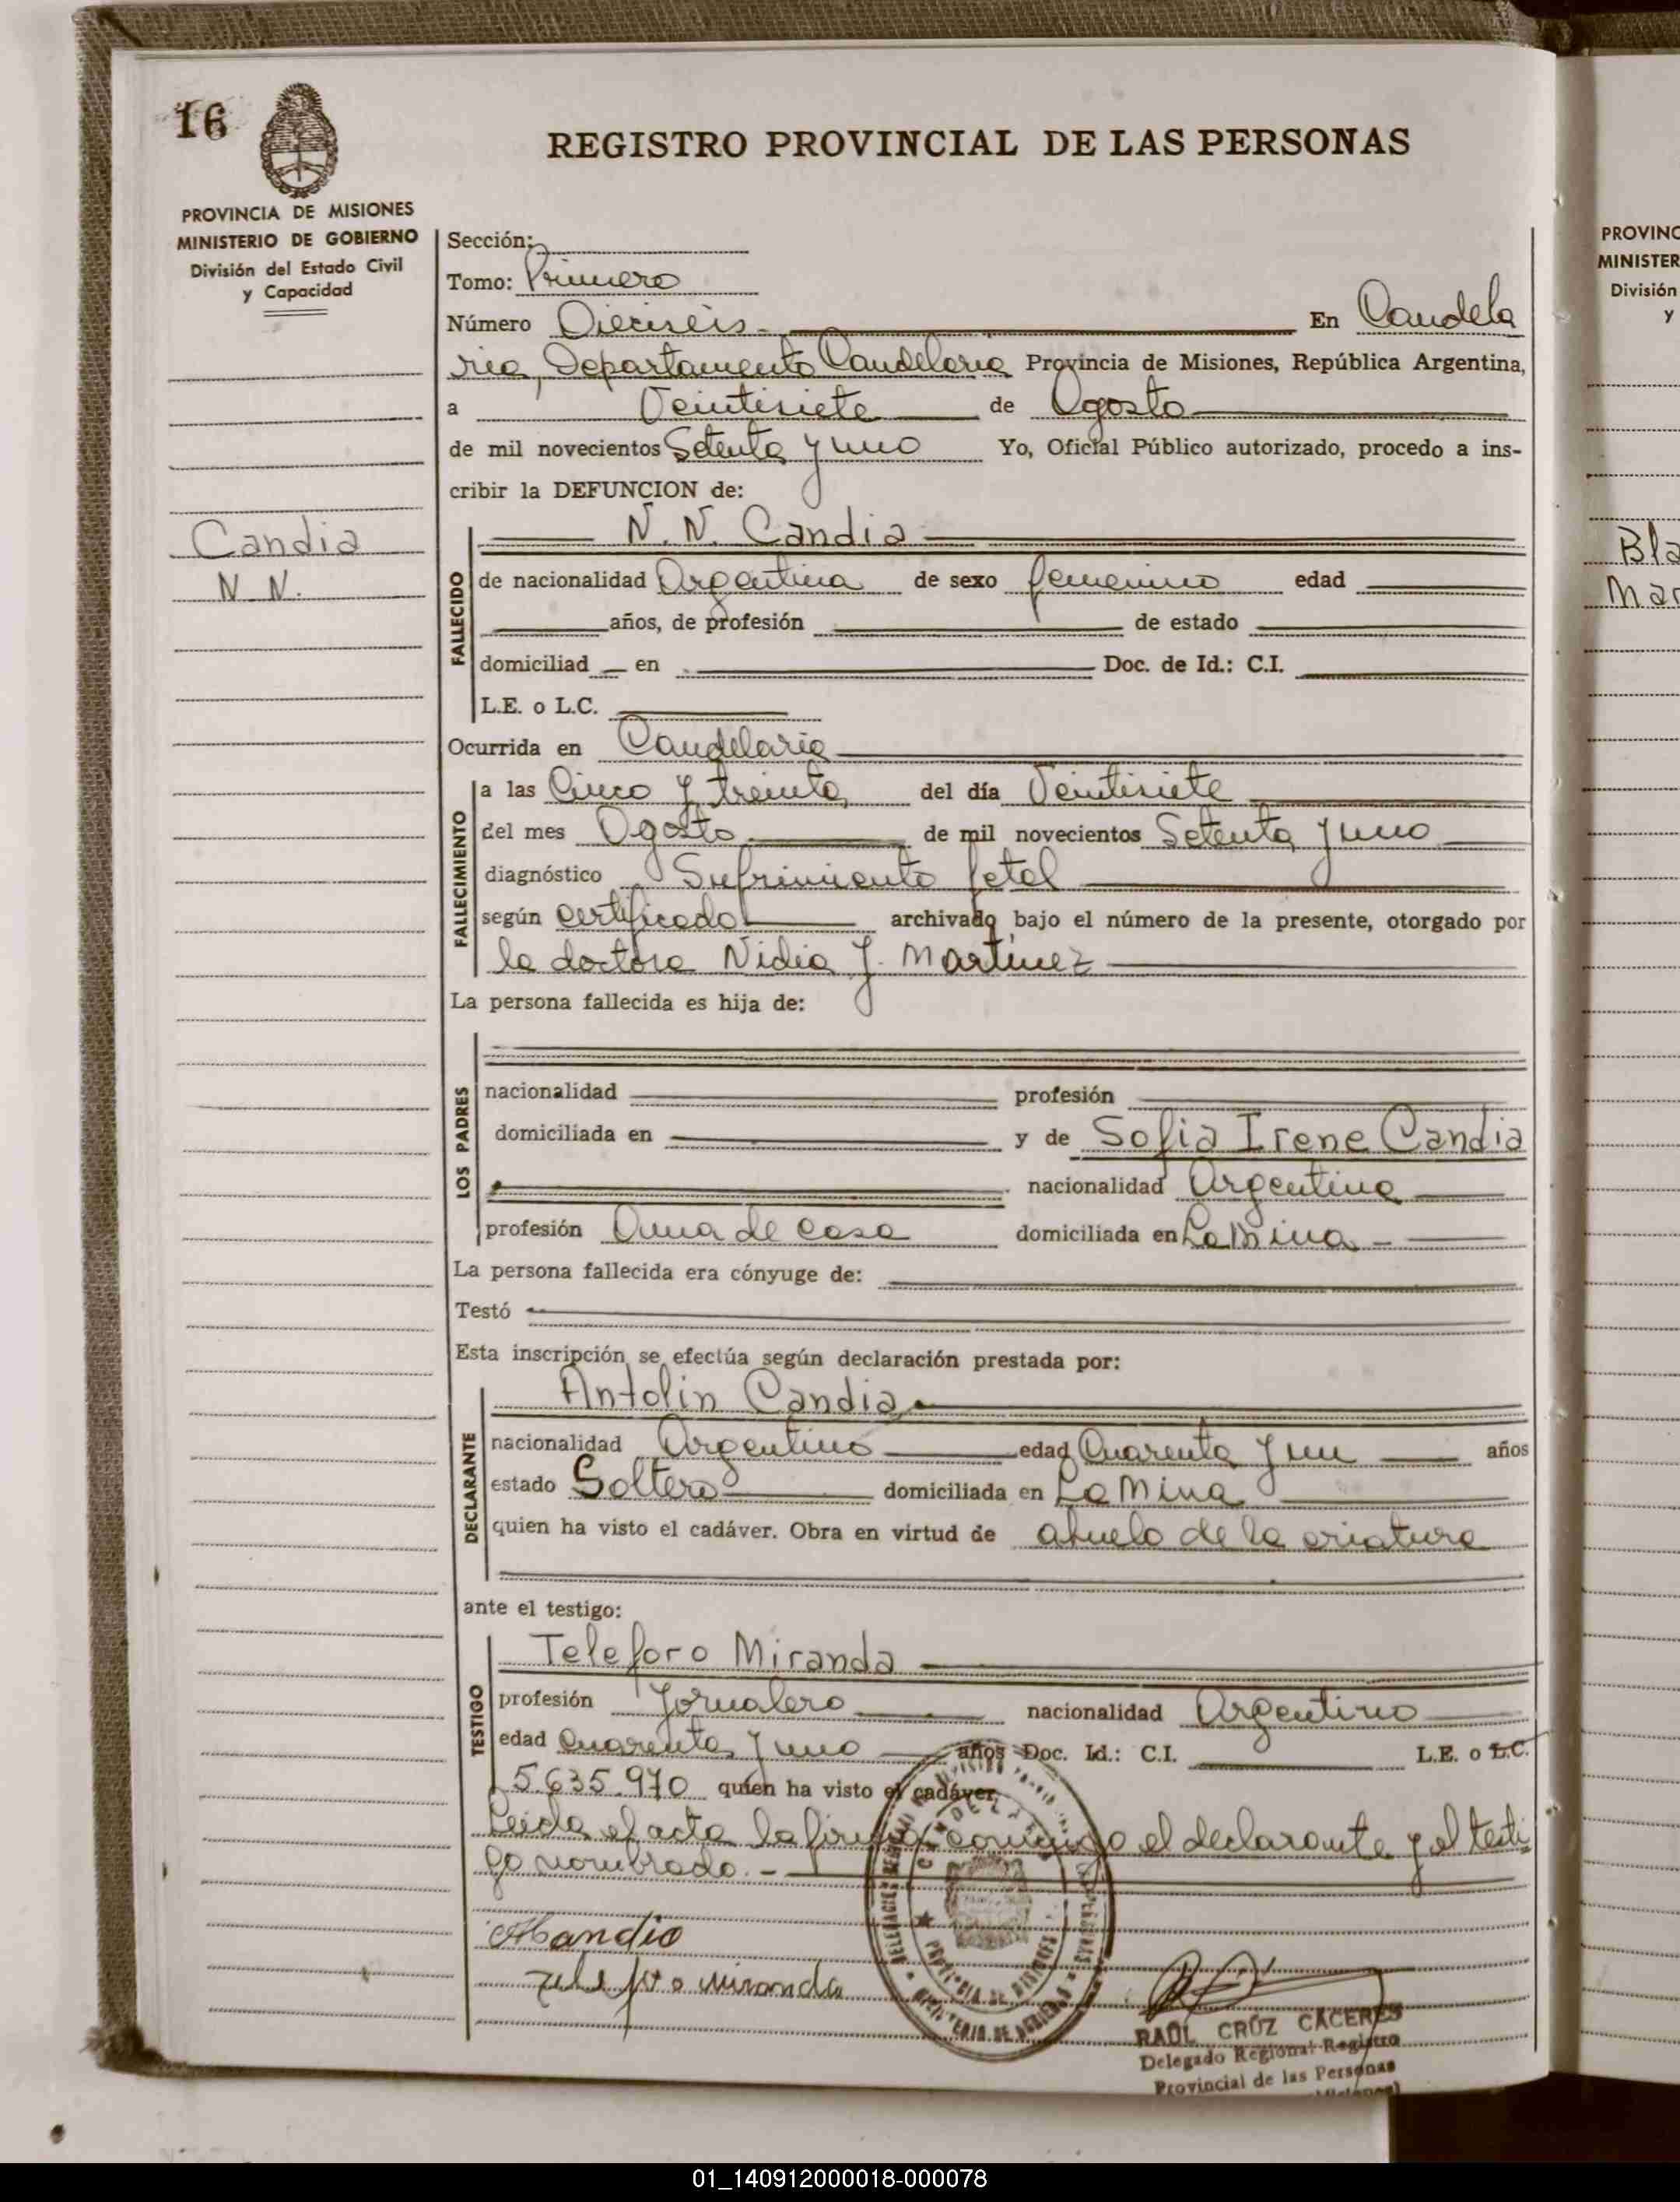 16
REGISTRO PROVINCIAL DE LAS PERSONAS
PROVINCIA DE MISIONES
MINISTERIO DE GOBIERNO
División del Estado Civil
y Capacidad
Candia
N. N.
Sección:
Tomo: Primero
Número Dieciseis.- En Candela
ria, Departamento Candelaria Provincia de Misiones, República Argentina,
a Veintisiete de Agosto
de mil novecientos Setenta y uno Yo, Oficial Público autorizado, procedo a ins-
cribir la DEFUNCION de:
FALLECIDO
N. N. Candia
de nacionalidad Argentina de sexo femenino edad
años, de profesión de estado
domiciliad en Doc. de Id.: C.I.
L.E. o L.C.
Ocurrida en Candelaria
FALLECIMIENTO
a las Cinco y treinta del día Veintisiete
del mes Agosto de mil novecientos Setenta y uno
diagnóstico Sufrimiento fetal
según certificado archivado bajo el número de la presente, otorgado por
la doctora Nidia J. Martínez
La persona fallecida es hija de:
LOS PADRES
nacionalidad profesión
domiciliada en y de Sofia Irene Candia
nacionalidad Argentina
profesión Ama de casa domiciliada en La Mina -
La persona fallecida era cónyuge de:
Testó
Esta inscripción se efectúa según declaración prestada por:
DECLARANTE
Antolin Candia
nacionalidad Argentino edad Cuarenta y un años
estado Soltero domiciliada en La Mina
quien ha visto el cadáver. Obra en virtud de abuelo de la criatura
ante el testigo:
TESTIGO
Teleforo Miranda
profesión Jornalero nacionalidad Argentino
edad Cuarenta y uno años Doc. Id.: C.I. L.E. o L.C.
5.635.970 quien ha visto el cadáver.
Leida el acta la firma conmigo el declarante y el testi
go nombrado.-
ACandia
miranda
RAÚL CRUZ CACERES
Delegado Regional Registro
Provincial de las Personas
PROVINC
MINISTER
División
y
Bla
Mar
01_140912000018-000078